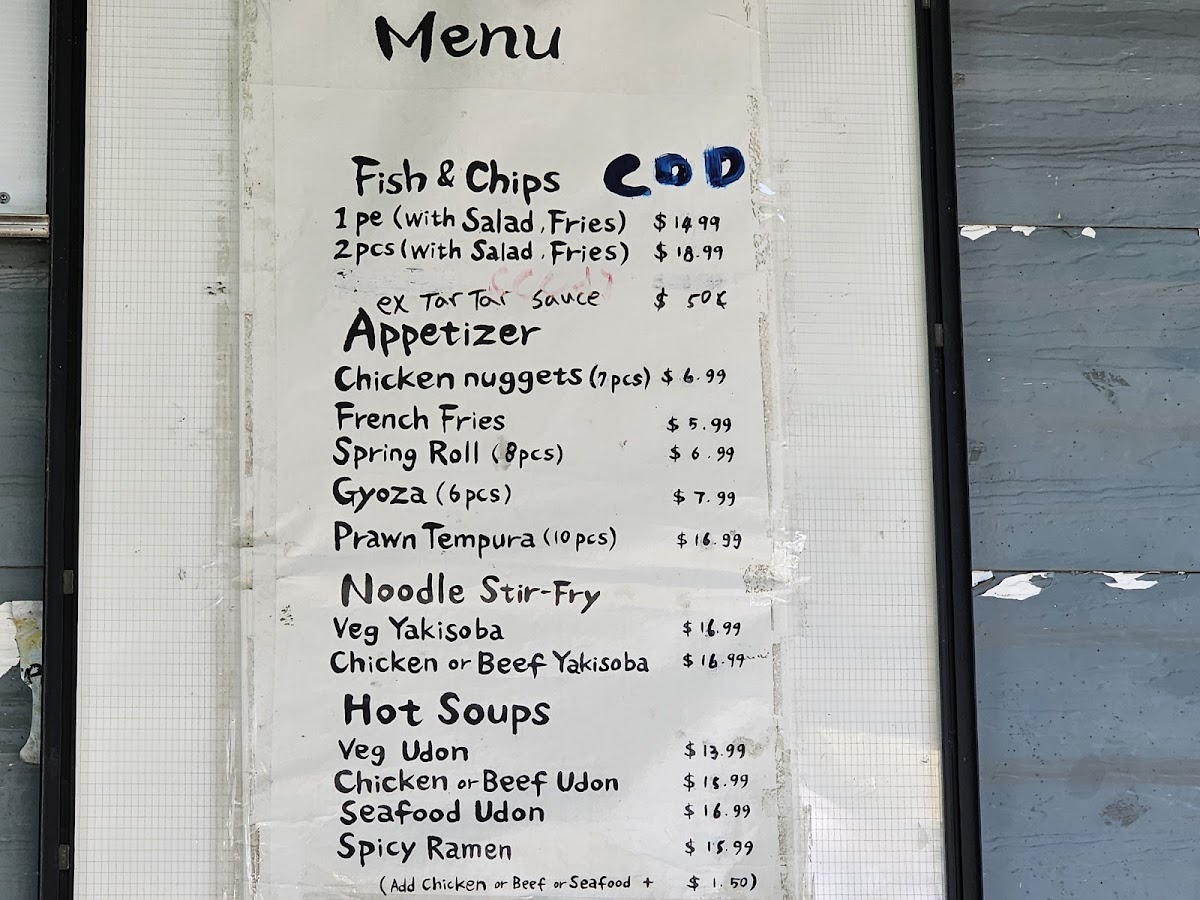 Menu
Fish & Chips COD
1 pe (with Salad, Fries) $14.99
2pcs (with Salad, Fries) $18.99
ex Tar Tar sauce $ 50¢
Appetizer
Chicken nuggets (7pcs) $6.99
French Fries $5.99
Spring Roll (8pcs) $6.99
Gyoza (6pcs) $7.99
Prawn Tempura (10pcs) $16.99
Noodle Stir-Fry
Veg Yakisoba $16.99
Chicken or Beef Yakisoba $16.99
Hot Soups
Veg Udon $13.99
Chicken or Beef Udon $15.99
Seafood Udon $16.99
Spicy Ramen $15.99
(Add Chicken or Beef or Seafood + $1.50)